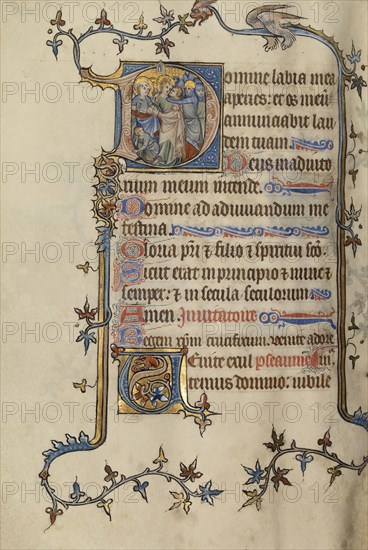 Domine labia mea
aperies: et os meū
annunciabit lau
dem tuam. 
Deus in adiuto
rium meum intende.
Domine ad adiuvandum me
festina.
Gloria pr̄i et filio et spiritui sc̄o
Sicut erat in principio et nunc et
semper: et in secula seculorum
Amen. Invitatoire
Regem xp̄m crucifixum. venite adore
Venite exul pseaume
temus domino: iubile